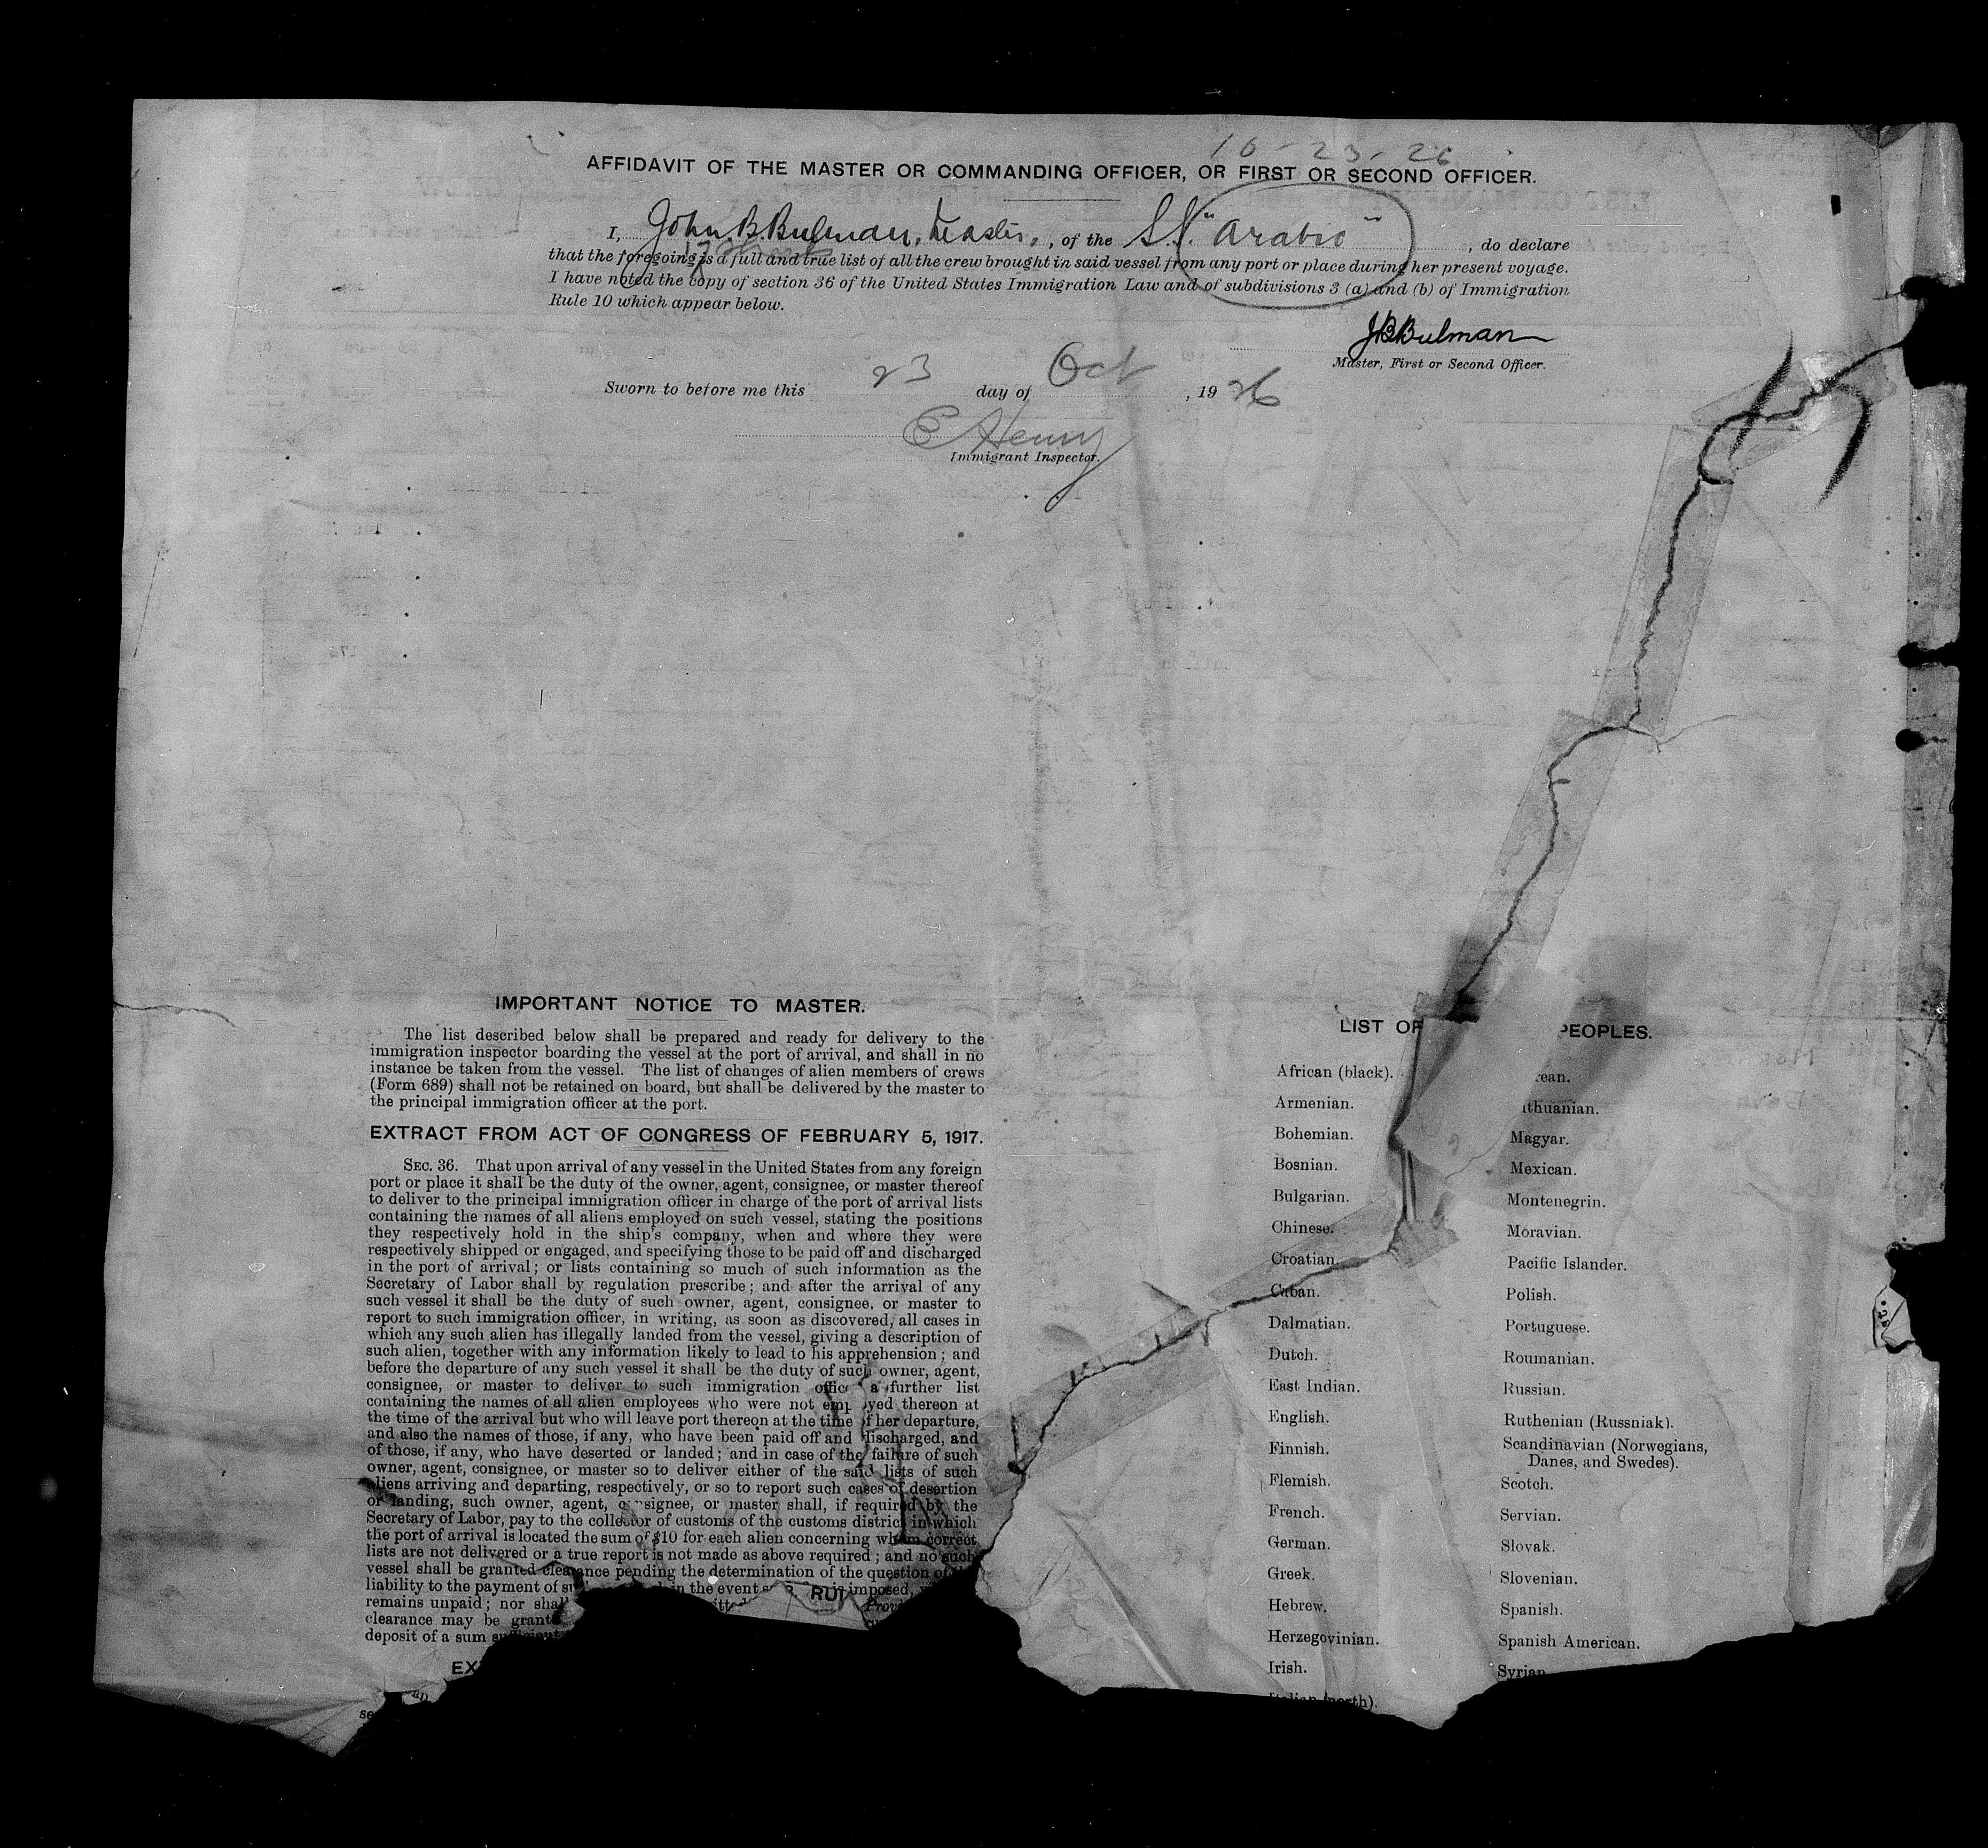 10-23-26
AFFIDAVIT OF THE MASTER OR COMMANDING OFFICER, OR FIRST OR SECOND OFFICER.
I, John B. Bulman, Master, of the S.S. "Arabic", do declare
that the foregoing is a full and true list of all the crew brought in said vessel from any port or place during her present voyage.
I have noted the copy of section 36 of the United States Immigration Law and of subdivisions 3 (a) and (b) of Immigration
Rule 10 which appear below.
JBBulman
Master, First or Second Officer.
Sworn to before me this 23 day of Oct, 1926
E Henry
Immigrant Inspector.
IMPORTANT NOTICE TO MASTER.
The list described below shall be prepared and ready for delivery to the
immigration inspector boarding the vessel at the port of arrival, and shall in no
instance be taken from the vessel. The list of changes of alien members of crews
(Form 689) shall not be retained on board, but shall be delivered by the master to
the principal immigration officer at the port.
EXTRACT FROM ACT OF CONGRESS OF FEBRUARY 5, 1917.
SEC. 36. That upon arrival of any vessel in the United States from any foreign
port or place it shall be the duty of the owner, agent, consignee, or master thereof
to deliver to the principal immigration officer in charge of the port of arrival lists
containing the names of all aliens employed on such vessel, stating the positions
they respectively hold in the ship's company, when and where they were
respectively shipped or engaged, and specifying those to be paid off and discharged
in the port of arrival; or lists containing so much of such information as the
Secretary of Labor shall by regulation prescribe; and after the arrival of any
such vessel it shall be the duty of such owner, agent, consignee, or master to
report to such immigration officer, in writing, as soon as discovered, all cases in
which any such alien has illegally landed from the vessel, giving a description of
such alien, together with any information likely to lead to his apprehension; and
before the departure of any such vessel it shall be the duty of such owner, agent,
consignee, or master to deliver to such immigration a further list
containing the names of all alien employees who were not thereon at
the time of the arrival but who will leave port thereon at the time of her departure,
and also the names of those, if any, who have been paid off and discharged, and
of those, if any, who have deserted or landed; and in case of the failure of such
owner, agent, consignee, or master so to deliver either of the said lists of such
aliens arriving and departing, respectively, or so to report such cases of desertion
or landing, such owner, agent, consignee, or master shall, if required by the
Secretary of Labor, pay to the collector of customs of the customs district in which
the port of arrival is located the sum of $10 for each alien concerning whom correct
lists are not delivered or a true report is not made as above required; and no such
vessel shall be granted clearance pending the determination of the question of
liability to the payment of in the event imposed,
remains unpaid; nor
clearance may be
deposit of a sum
LIST OF PEOPLES.
African (black).
Armenian.
Bohemian.
Bosnian.
Bulgarian.
Chinese.
Croatian.
Cuban.
Dalmatian.
Dutch.
East Indian.
English.
Finnish.
Flemish.
French.
German.
Greek.
Hebrew.
Herzegovinian.
Irish.
Italian (north).
Magyar.
Mexican.
Montenegrin.
Moravian.
Pacific Islander.
Polish.
Portuguese.
Roumanian.
Russian.
Ruthenian (Russniak).
Scandinavian (Norwegians,
Danes, and Swedes).
Scotch.
Servian.
Slovak.
Slovenian.
Spanish.
Spanish American.
Syrian